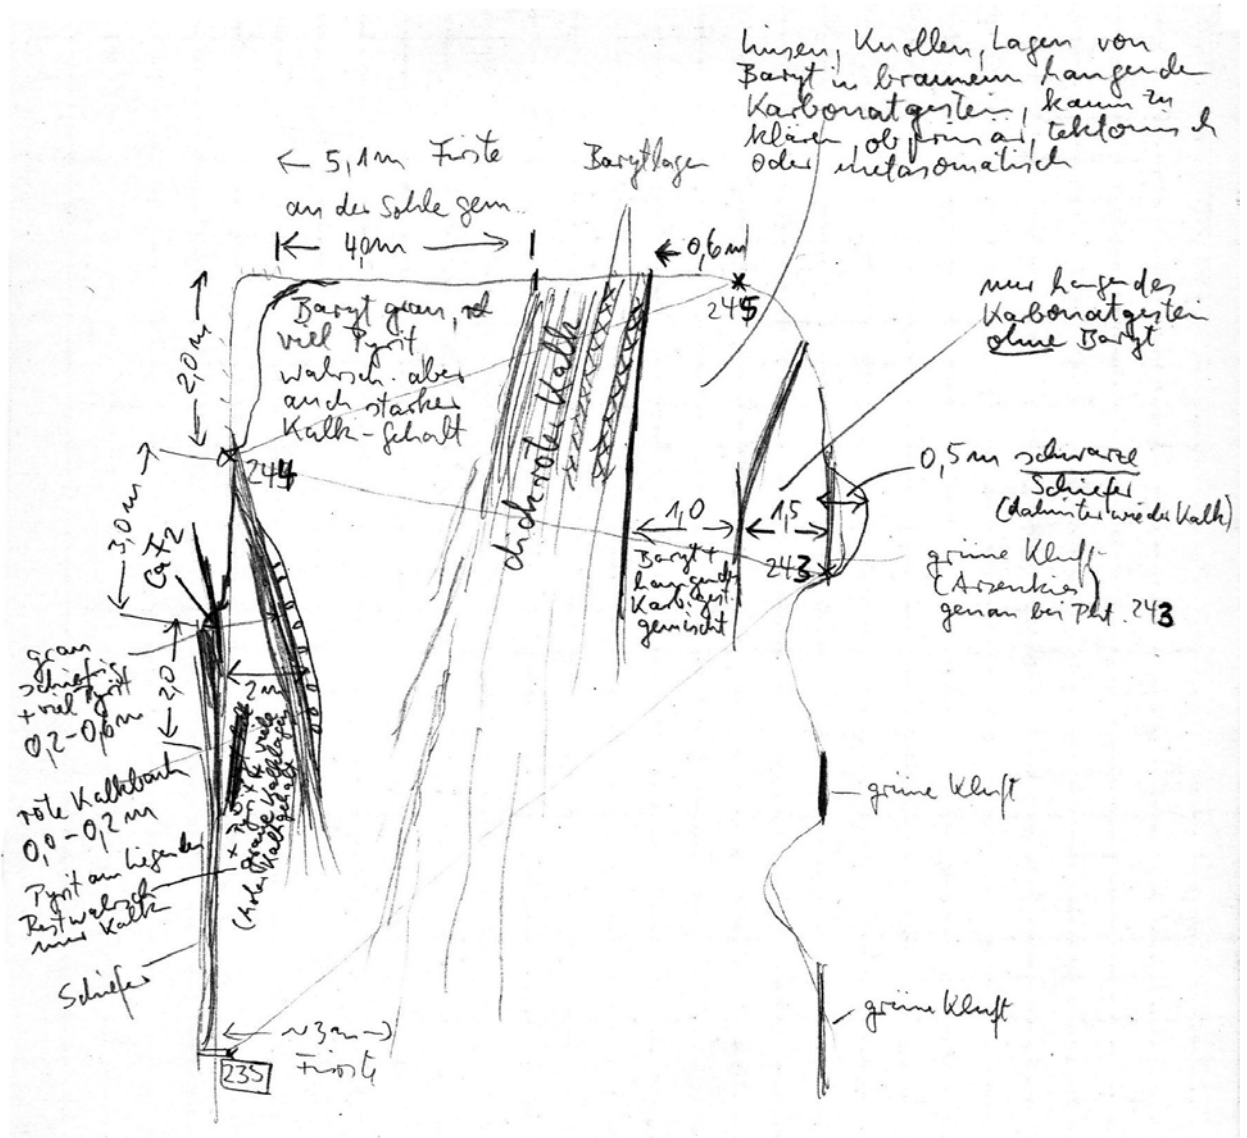 Linsen, Knollen, Lagen von
Baryt in braunem hangenden
Karbonatgestein, kaum zu
klären, ob primär, tektonisch
oder metasomatisch
← 5,1m Firste
an der Sohle gem.
← 4,0m →
Barytlagen
← 0,6m
245
2,0m
Baryt grau, rot
viel Pyrit,
wahrsch. aber
auch starker
Kalk-Gehalt
dichroter Kalk
nur hangendes
Karbonatgestein
ohne Baryt
244
0,5m schwarze
Schiefer
(dahinter wieder Kalk)
3,0m
CaF2
1,0
1,5
Baryt +
hangendes
Karb.gest.
gemischt
243
grüne Kluft
(Arsenkies)
genau bei Pkt. 243
grau
schiefrig
+ viel Pyrit
0,2-0,6m
2,0
2m
rote Kalkbank
0,0-0,2m
Pyrit am Liegenden
Rest wahrsch.
nur Kalk
Schiefer
grüne Kluft
grüne Kluft
~3m
Firste
235